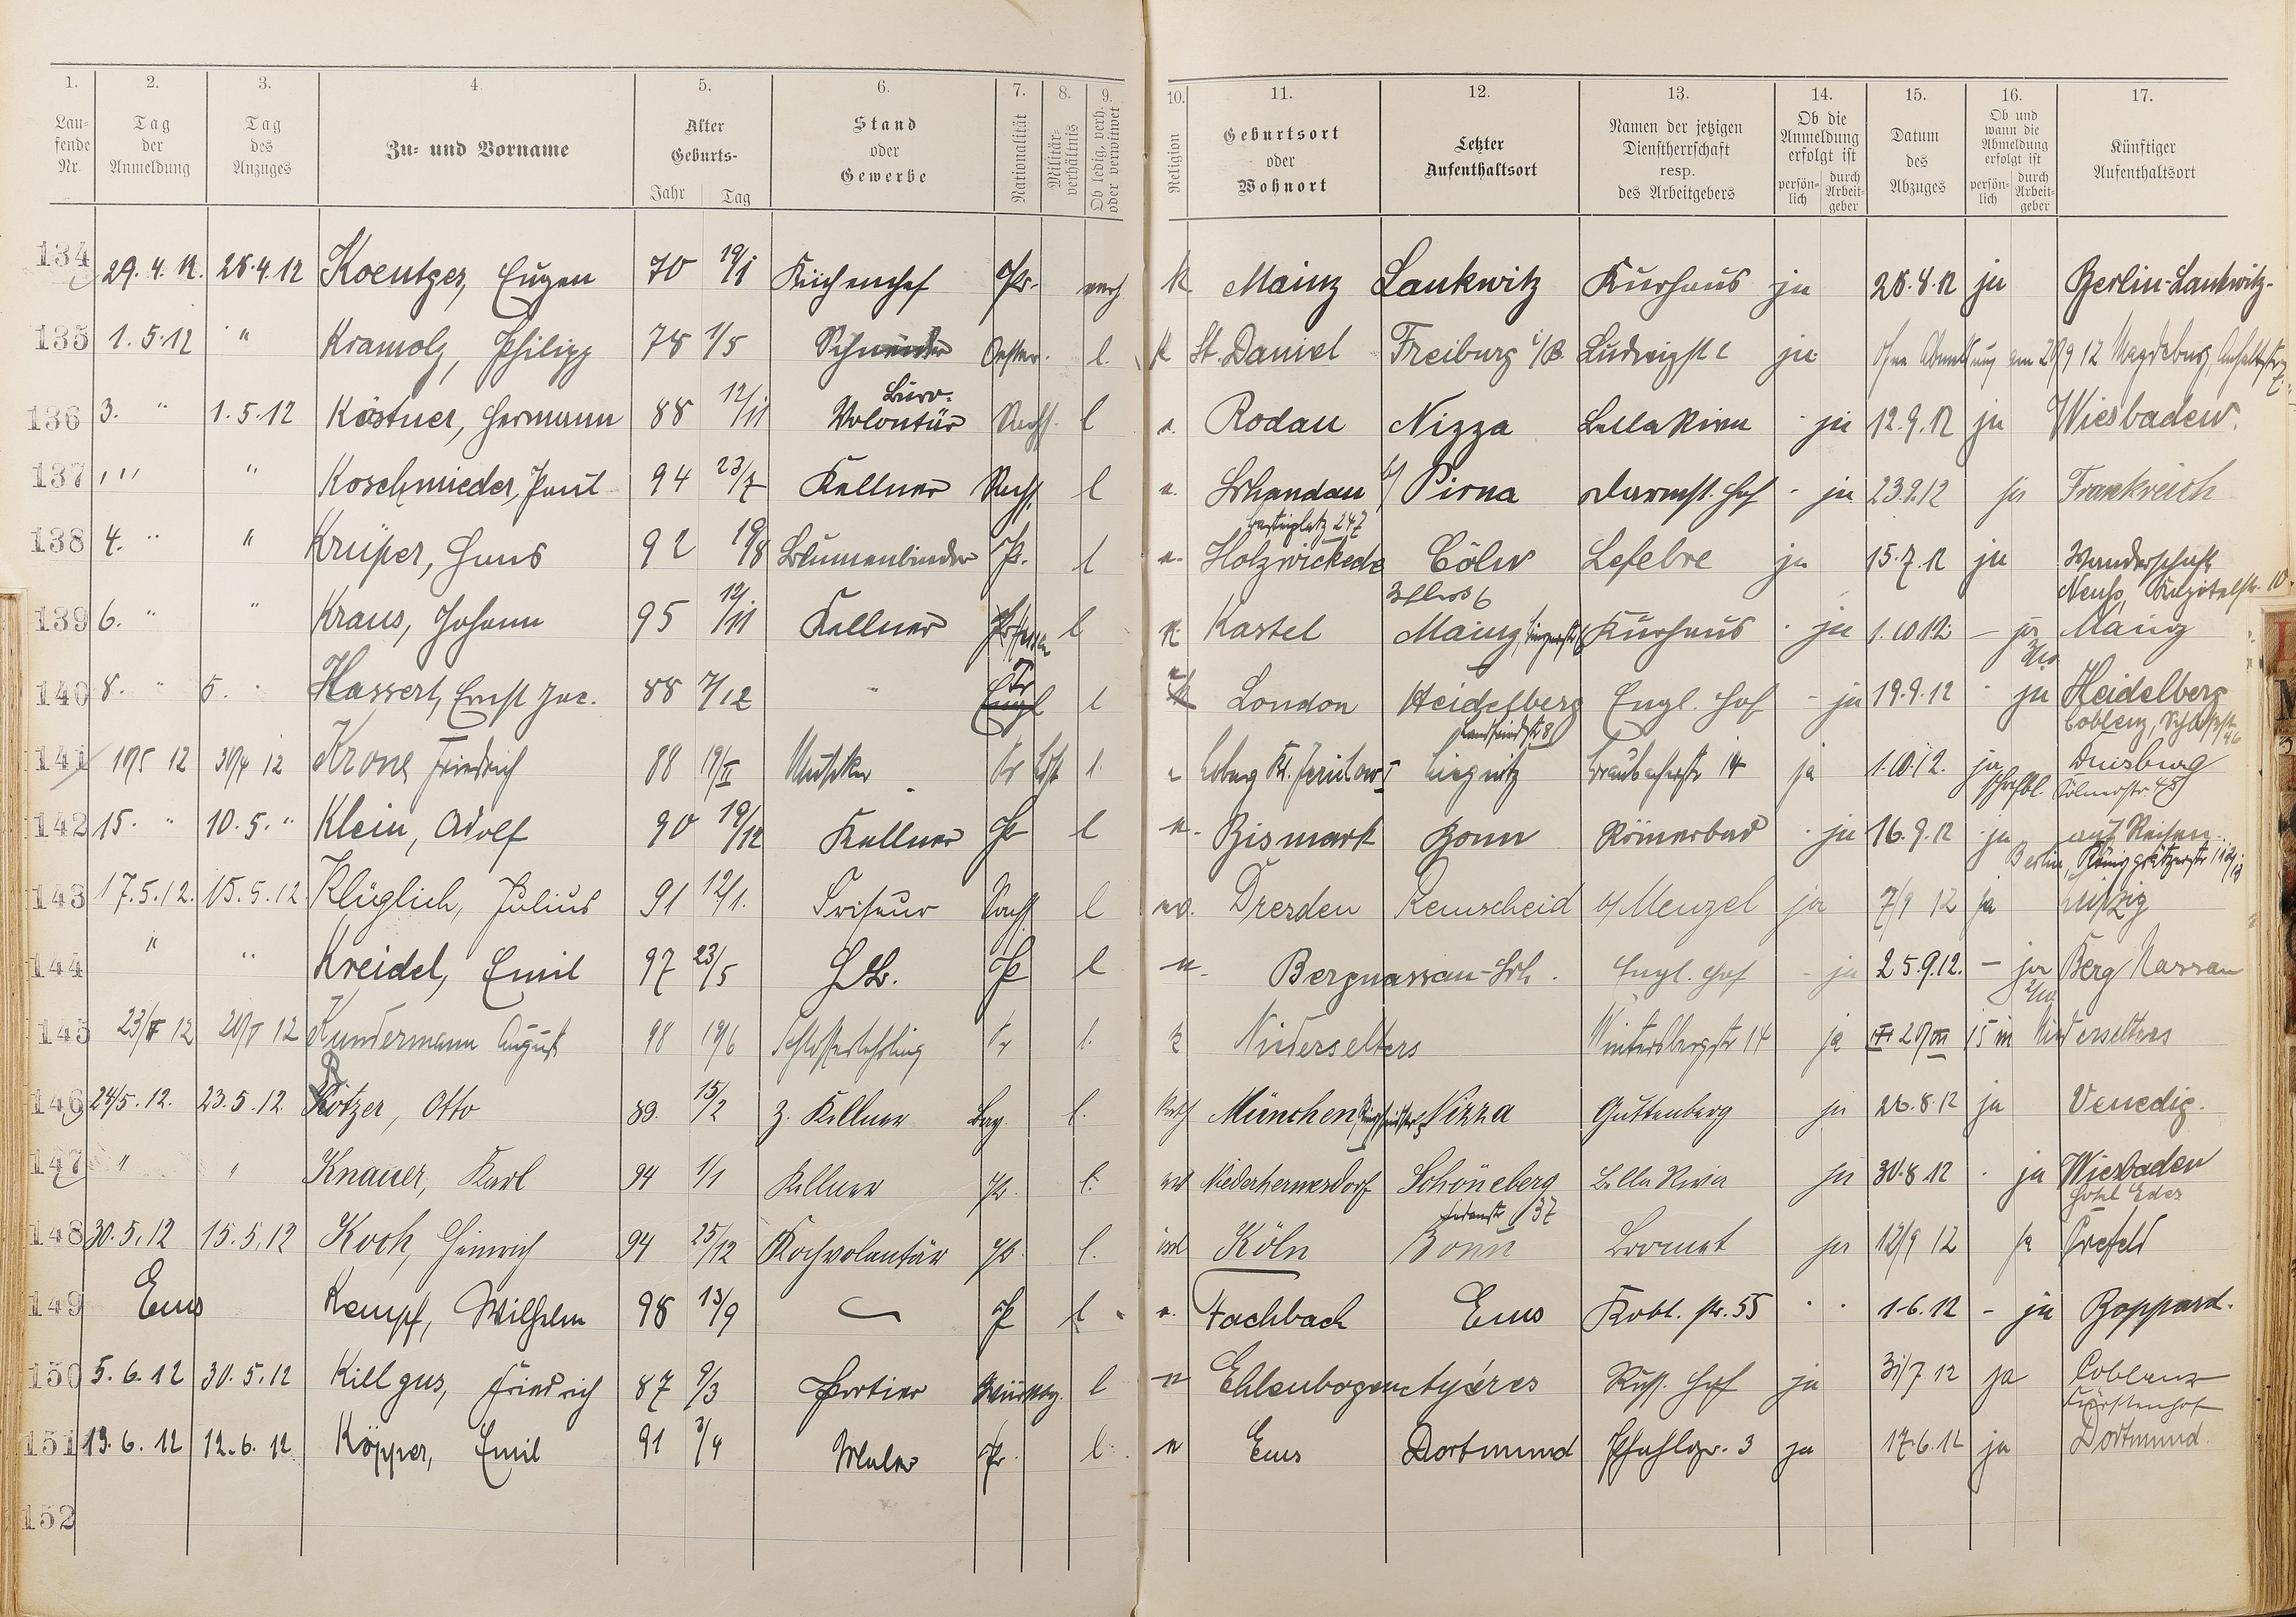 1. 2. 3. 4. 5. 6. 7. 8. 9. 10. 11. 12. 13. 14. 15. 16. 17.
Lau-fende Nr. Tag der Anmeldung Tag des Anzuges Zu- und Vorname Alter Geburts- Jahr Tag Stand oder Gewerbe Nationalität Militär-verhältnis Ob ledig, verh. oder verwitwet Religion Geburtsort oder Wohnort Letzter Aufenthaltsort Namen der jetzigen Dienstherrschaft resp. des Arbeitgebers Ob die Anmeldung erfolgt ist persön-lich durch Arbeit-geber Datum des Abzuges Ob und wann die Abmeldung erfolgt ist persön-lich durch Arbeit-geber Künftiger Aufenthaltsort
134 29.4.12. 28.4.12 Koentges, Eugen 70 19/1 Küchenchef Pr. verh k Mainz Lankwitz Kurhaus ja 28.8.12 ja Berlin-Lankwitz-
135 1.5.12 " Kramolz, Philipp 78 1/5 Schneider Oester. l. k St. Daniel Freiburg i/B. ja Magdeburg,
136 3. " 1.5.12 Köstner, Hermann 88 12/11 Büro-Volontär Sachs. l e. Rodau Nizza Bella Riva - ja 12.9.12 ja Wiesbaden.
137 " " " Koschmieder, Paul 94 23/7 Kellner Sachs. l e. Schandau b/ Pirna Darmst. Hof - ja 23.9.12 ja Frankreich
138 4. " " Krüper, Hans 92 19/8 Blumenbinder Pr. l e. Holzwickede Cöln Lefebre ja 15.7.12 ja Wanderschaft
Neuß, 10
139 6. " " Kraus, Johann 95 12/11 Kellner Hessen l k. Kastel Mainz, Kurhaus - ja 1.10.12 - ja Mainz
140 8. " 5. " Hassert, Ernst Jac. 88 7/12 " Engl Pr l London Heidelberg Engl. Hof - ja 19.9.12 - ja Heidelberg
Coblenz,
141 10/5 12 30/4 12 Krone Friedrich 88 19/II Musiker Pr l. Loburg Kr. Jerichow I Liegnitz Braubacherstr 14 ja 1.10.12. ja Duisburg
Cölnerstr. 48
142 15. " 10.5. " Klein, Adolf 90 19/12 Kellner Pr l e. Bismark Bonn Römerbad - ja 16.9.12 - ja auf Reisen.
Berlin, Königgrätzerstr 112/113
143 17.5.12. 15.5.12 Klüglich, Julius 91 12/1. Friseur Sachs. l ev. Dresden Remscheid b/ Menzel ja 7/9 12 ja Leipzig
144 " " Kreidel, Emil 97 23/5 Pr l e. Bergnassau-Sch. Engl. Hof - ja 25.9.12. - ja Berg Nassau
145 23/V 12 20/V 12 Kundermann August 98 19/6 Schlosserlehrling Pr l. k Niederselters Wintersbergstr 14 ja Niederselters
146 24/5.12. 23.5.12. Rötzer, Otto 89. 15/2 z. Kellner Bay. l. Kath München, Nizza Guttenberg ja 28.8.12 ja Venedig.
147 " " Knauer, Karl 94 1/1 Kellner Pr. l. ev Niederhermesdorf Schöneberg Bella Riva ja 30.8.12 - ja Wiesbaden
37 Hotel Eder
148 30.5.12 15.5.12 Koch, Heinrich 94 25/12 Kochvolontär Pr. l. isrl Köln Bonn ja 12/9 12 ja Crefeld
149 Ems Kempf, Wilhelm 98 13/9 Pr l e. Fachbach Ems Kobl. Str. 55 - - 1.6.12 - ja Boppard.
150 5.6.12 30.5.12 Killgus, Friedrich 87 9/3 Portier Württbg. l e Ehlenbogen Hyères Russ. Hof ja 31/7 12 ja Coblenz
Fürstenhof
151 13.6.12 12.6.12 Köpper, Emil 91 3/4 Maler Pr. l. e Ems Dortmund Pfahlgr. 3 ja 17.6.12 ja Dortmund.
152